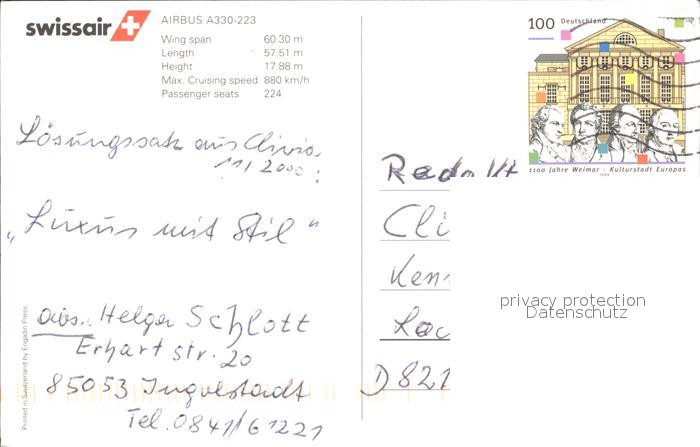 swissair
AIRBUS A330-223
Wing span 60.30 m
Length 57.51 m
Height 17.88 m
Max. Cruising speed 880 km/h
Passenger seats 224
Lösungssatz aus Clivia
11/2000:
"Luxus mit Stil"
abs.: Helga Schlott
Erhartstr. 20
85053 Ingolstadt
Tel. 0841/61221
Printed in Switzerland by Engadin Press
100 Deutschland
1100 Jahre Weimar - Kulturstadt Europas
1999
Cli
D 821
privacy protection
Datenschutz